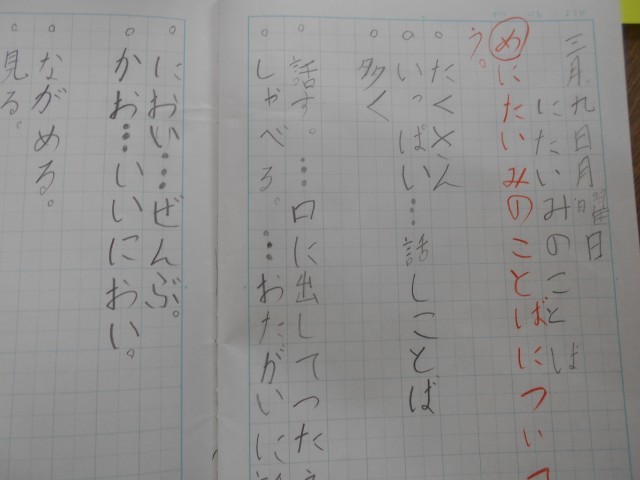 三月九日月曜日
にたいみのことば
めにたいみのことばについて
う。
たくさん
いっぱい…話しことば
多く
話す。…口に出してつたえ
しゃべる。…おたがいに話
におい…ぜんぶ。
かお…いいにおい。
ながめる。
見る。